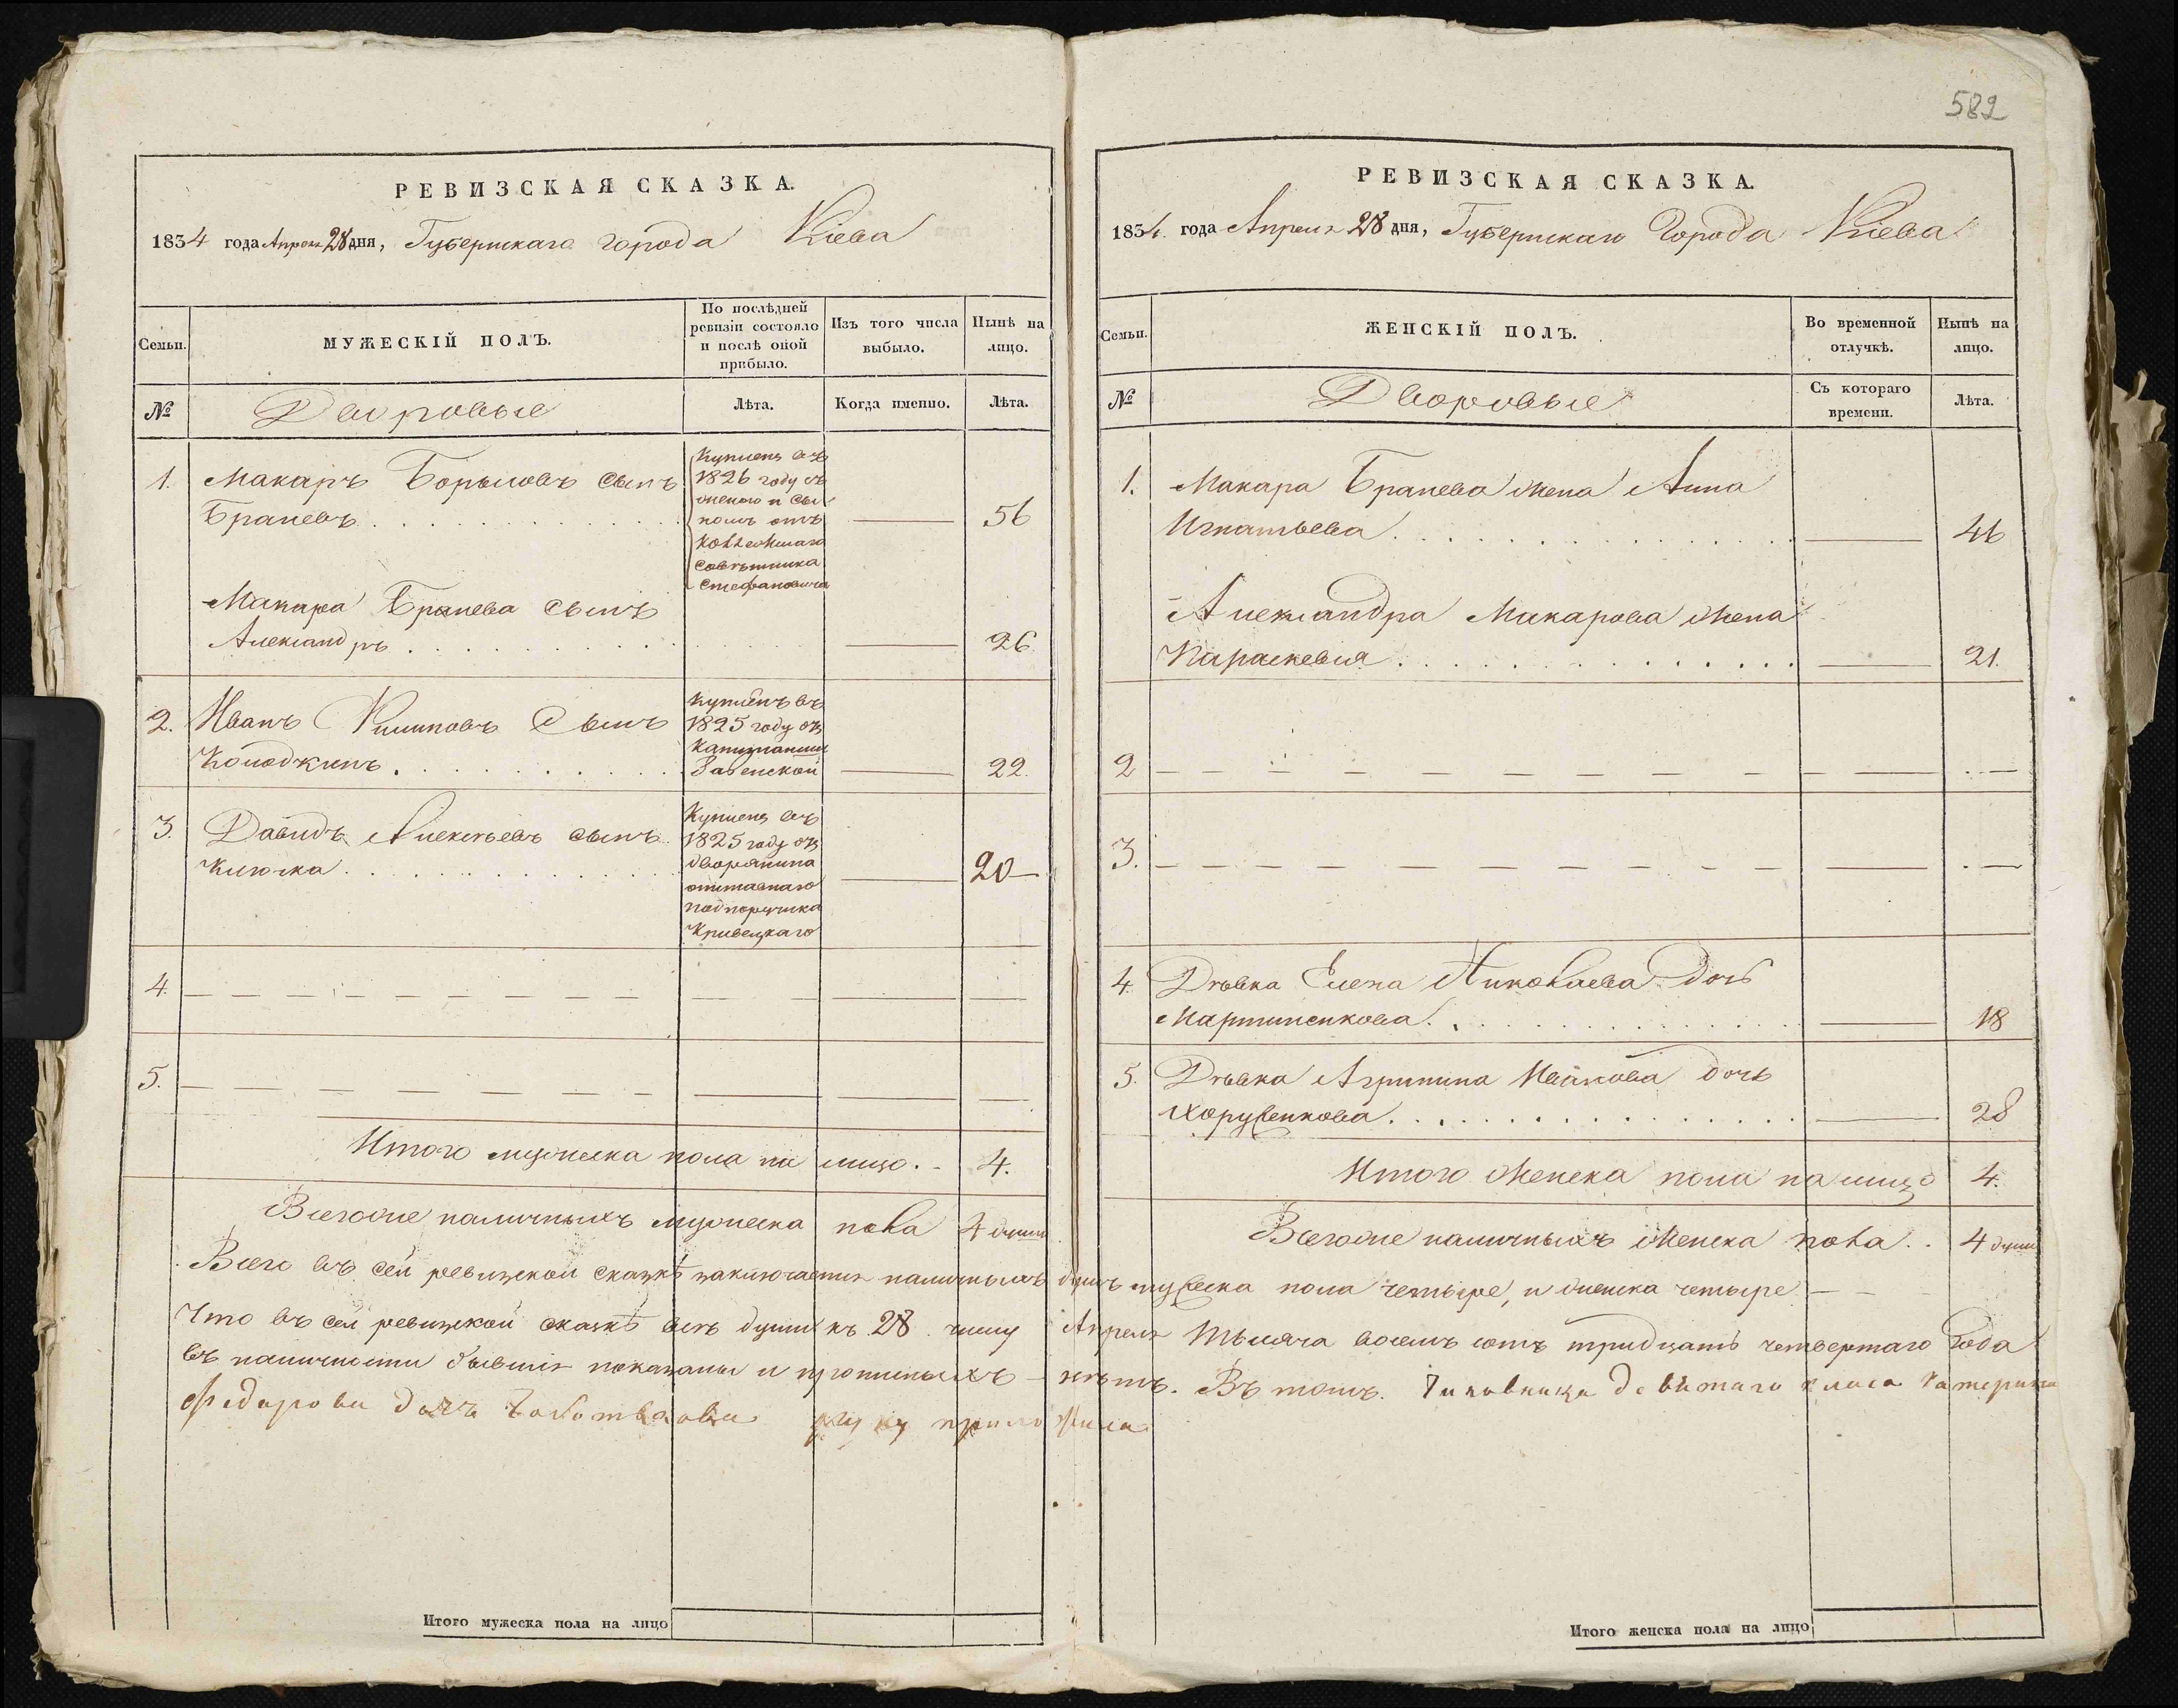 582
РЕВИЗСКАЯ СКАЗКА.
1834 года Апреля 28 дня, Губернскаго города Кіева
Семьи.
МУЖЕСКІЙ ПОЛЪ.
По послѣдней
ревизіи состояло
и послѣ оной
прибыло.
Изъ того числа
выбыло.
Нынѣ на
лицо.
№
Дворовые
Лѣта.
Когда именно.
Лѣта.
1. Макаръ сынъ
Браневъ
Купленъ въ
1826 году съ
женою и сы
номъ отъ
Коллежшаго
Совѣтника
Стефановича
56
Макара Бранева сынъ
Александръ
26
2. Иванъ Филиповъ Сынъ
Колодкинъ
Купленъ въ
1825 году отъ
Капитанши
22
3. Давидъ Алексѣевъ сынъ
Клюжка
Купленъ въ
1825 году отъ
дворянина
отставнаго
подпоручика
Кривецкаго
20
4.
5.
Итого мужеска пола на лицо. 4.
Всегоже наличныхъ мужеска пола 4 души
РЕВИЗСКАЯ СКАЗКА.
1834 года Апреля 28 дня, Губернскаго Города Кіева
Семьи.
ЖЕНСКІЙ ПОЛЪ.
Во временной
отлучкѣ.
Нынѣ на
лицо.
№
Дворовые
Съ котораго
времени.
Лѣта.
1. Макара Бранева жена Анна
Игнатьева
46
Александра Макарова жена
Параскевия
21.
2
3.
4. Дѣвка Елена Николаева дочь
Мартиненкова
18
5. Дѣвка Агрипина Иванова дочь
28
Итого Женска пола на лицо 4.
Всегоже наличныхъ Женска пола 4 души
Всего въ сей ревизской сказкѣ заключается наличныхъ душъ мужеска пола четыре, и женска четыре
Что въ сей ревизской сказкѣ всѣ души къ 28 числу Апреля тысяча восемь сотъ тридцать четвертаго года
въ наличности бывшія показаны и прописныхъ нѣтъ. Въ томъ. Чиновница девятаго класа Катерина
Федорова дочь руку приложила
Итого мужеска пола на лицо
Итого женска пола на лицо